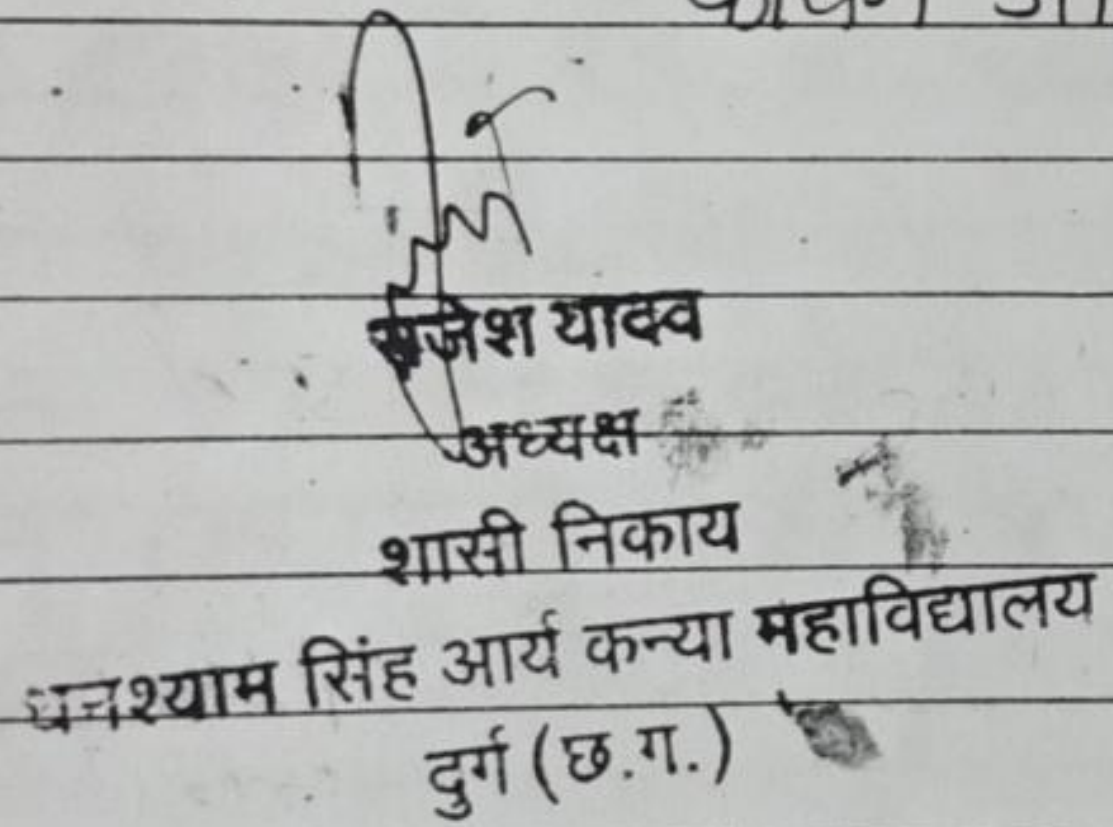 राजेश यादव
अध्यक्ष
शासी निकाय
घनश्याम सिंह आर्य कन्या महाविद्यालय
दुर्ग (छ.ग.)